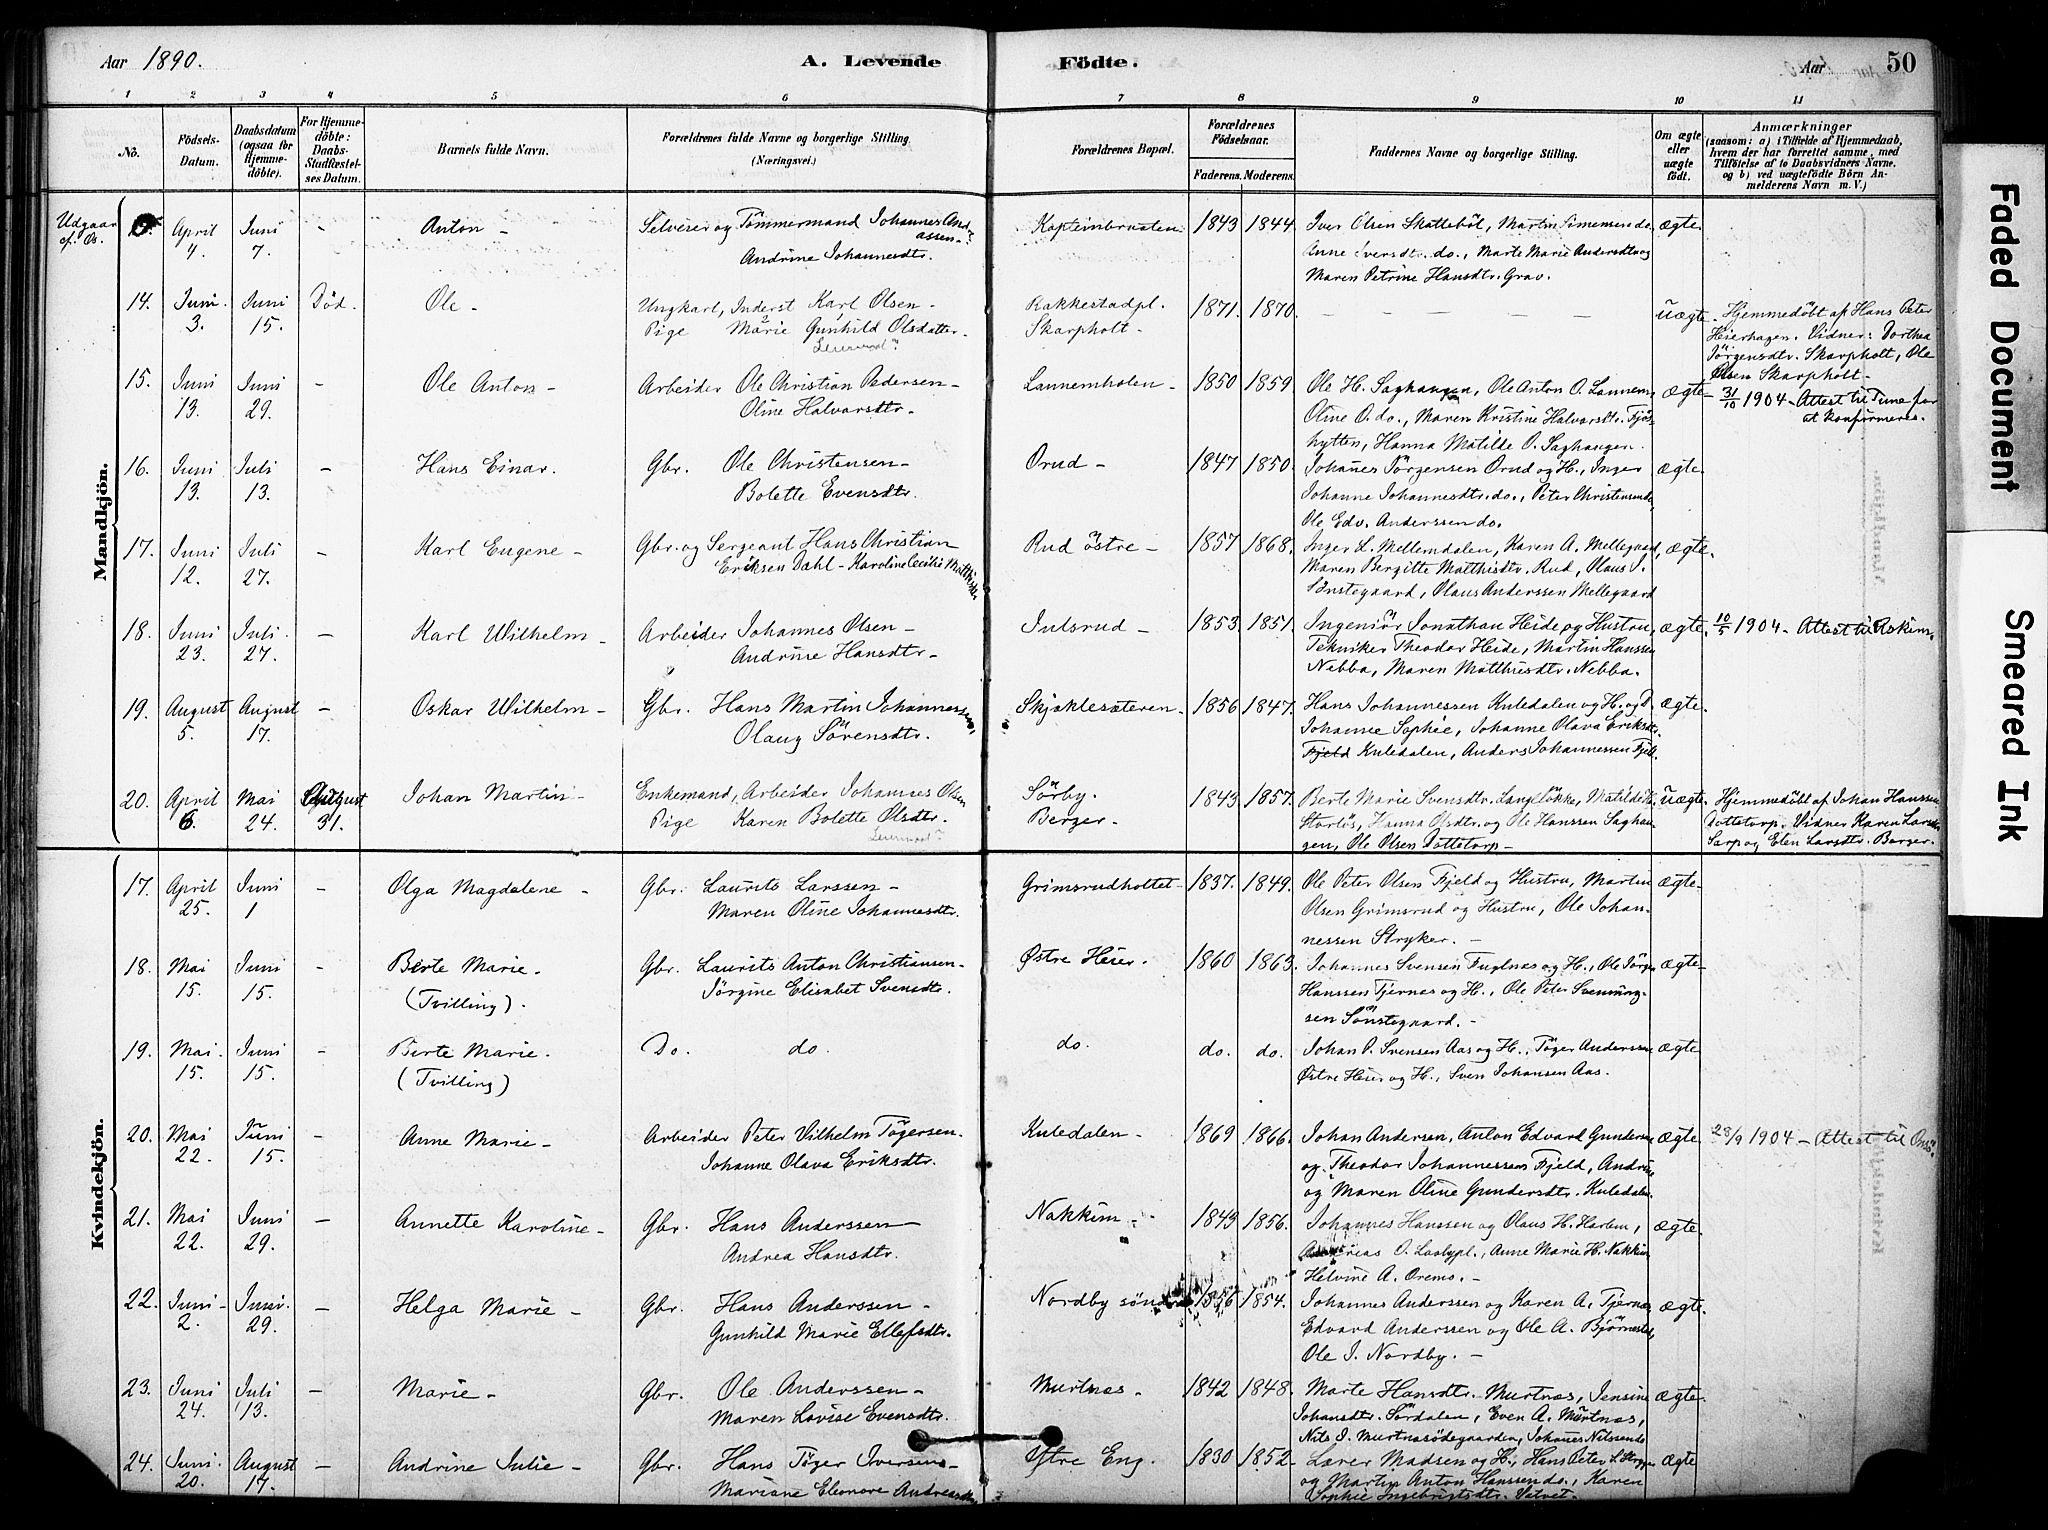 Aar 1890.
A. Levende
Födte.
Aar
50
1 2 3 4 5 6 7 8 9 10 11
No.
Födsels-Datum.
Daabsdatum (ogsaa for Hjemmedöbte).
For Hjemmedöbte: Daabs-Stadfæstelses Datum.
Barnets fulde Navn.
Forældrenes fulde Navne og borgerlige Stilling (Næringsvei.)
Forældrenes Bopæl.
Forældrenes Födselsaar.
Faderens. Moderens.
Faddernes Navne og borgerlige Stilling.
Om ægte eller uægte födt.
Anmærkninger
(saasom: a) i Tilfælde af Hjemmedaab, hvem der har forrettet samme, med Tilföielse af to Daabsvidners Navne, og b) ved uægtefödte Börn Anmelderens Navn m. V.)
Mandkjön.
Udgaar
April 4. Juni 7. - Anton - Selveier og Tömmermand Johannes Andreassen - Kapteinbraaten 1843 1844. Iver Olsen Skatteböl, Martin Simensen do ægte
Andrine Johannesdtr. Anne Iversdtr. do., Marte Marie Andersdtr og
Maren Petrine Hansdtr. Grav.
14. Juni 3. Juni 15. Död. Ole - Ungkarl, Inderst Karl Olsen - Rakkestadpl. 1871. 1870. - - - - uægte. Hjemmedöbt af Hans Peter
Pige Marie Gunhild Olsdatter Skarpholt - Heierhagen. Vidner: Dorthea
Jörgensdtr. Skarpholt, Ole
Olsen Skarpholt -
15. Juni 13. Juni 29. - Ole Anton - Arbeider Ole Christian Pedersen - Lannemholen - 1850 1859. Ole H. Saghaugen, Ole Anton O. Lannem, ægte - 31/10 1904 - Attest til Tune for
Oline Halvorsdtr. Oline O. do., Maren Kristine Halvorsdtr. at konfirmeres.
hytten, Hanna Matilde O. Saghaugen.
16. Juni 13. Juli 13. - Hans Einar. Gbr. Ole Christensen - Orud - 1847 1850. Johanes Jörgensen Orud og H., Inger ægte
Bolette Evensdtr. Johanne Johannesdtr. do., Peter Christensen do,
Ole Edv. Anderssen do.
17. Juni 12. Juli 27. - Karl Eugene - Gbr. og Sergeant Hans Christian Rud östre - 1857 1868. Inger L. Mellemdalen, Karen A. Mellegaard, ægte.
Eriksen Dahl - Karoline Cecilie Matthisdtr Maren Bergitte Matthisdtr. Rud, Olaus I.
Sönstegaard, Olaus Anderssen Mellegaard
18. Juni 23. Juli 27. - Karl Wilhelm - Arbeider Johannes Olsen - Julsrud - 1853. 1851. Ingeniör Jonathan Heide og Hustru, ægte. 10/5 1904 - Attest til Askim.
Andrine Hansdtr - Tekniker Theodor Heide, Martin Hanssen
Nebba, Maren Matthisdtr. Nebba.
19. August 5. August 17. - Oskar Wilhelm - Gbr. Hans Martin Johannessen, Skjaklesæteren - 1856 1847. Hans Johannessen Kuledalen og H. og D. ægte.
Olaug Sörensdtr. Johanne Sophie, Johanne Olava Eriksdtr.
Fjeld Kuledalen, Anders Johannessen Fjeld.
20. April 6. Mai 24. August 31. Johan Martin - Enkemand, Arbeider Johannes Olsen Sörby. 1843. 1857. Berte Marie Svensdtr. Langelökke, Matilde H. uægte. Hjemmedöbt af Johan Hanssen
Pige Karen Bolette Olsdtr. Berger. Storlös, Hanna Olsdtr. og Ole Hanssen Saghau- Tottetorp. Vidner Karen Larsdtr.
gen, Ole Olsen Tottetorp - Sarp og Elen Larsdtr. Berger.
Kvindekjön.
17. April 25. Juni 1 - Olga Magdalene - Gbr. Laurits Larssen - Grimsrudholtet - 1837. 1849. Ole Peter Olsen Fjeld og Hustru, Martin ægte
Maren Oline Johannesdtr. Olsen Grimsrud og Hustru, Ole Johan-
nessen Stryker. -
18. Mai 15. Juni 15. - Berte Marie. Gbr. Laurits Anton Christiansen - Østre Heier. 1860 1863. Johannes Svensen Fuglnæs og H., Ole Jörgen ægte
(Tvilling). Jörgine Elisabet Svensdtr. Hanssen Tjernes og H., Ole Peter Svenning-
sen Sönstegaard. -
19. Mai 15. Juni 15. - Berte Marie. Do. do. do. do. do. Johan P. Svensen Aas og H., Töger Anderssen ægte
(Tvilling) Østre Heier og H., Sven Johansen Aas.
20. Mai 22. Juni 15. - Anne Marie - Arbeider Peter Vilhelm Tögersen. Kuledalen - 1869 1866. Johan Andersen, Anton Edvard Gundersen ægte. 28/9 1904 - Attest til Onsö.
Johanne Olava Eriksdtr. og Theodor Johannessen Fjeld, Andrine
og Maren Oline Gundersdtr. Kuledalen
21. Mai 22. Juni 29. - Annette Karoline - Gbr. Hans Anderssen - Nakkim - 1849 1856. Johannes Hanssen og Olaus H. Harlem, ægte.
Andrea Hansdtr. Andreas O. Laabypl., Anne Marie H. Nakkim
Helvine A. Oremo. -
22. Juni 2. Juni 29. - Helga Marie - Gbr. Hans Anderssen - Nordby söndre 1856 1854. Johannes Anderssen og Karen A. Tjernæs ægte
Gunhild Marie Ellefsdtr. Edvard Anderssen og Ole A. Björnestad,
Ole I. Nordby. -
23. Juni 24. Juli 13. - Marie - Gbr. Ole Anderssen - Murtnæs - 1842 1848. Marte Hansdtr. Murtnæs, Jensine ægte.
Maren Lovise Evensdtr. Johansdtr. Sördalen, Even A. Murtnæs,
Nils I. Murtnæsödegaarden, Johanes Nilssen do
24. Juni 20. August 17. - Andrine Julie - Gbr. Hans Töger Iversen - Ytre Eng. 1830 1852. Lærer Madsen og H., Hans Peter ægte
Mariane Eleonore Andreasdtr og Martin Anton Hanssen do., Karen
Sophie Ingebrigtsdtr. Vatvet.
Faded Document
Smeared Ink